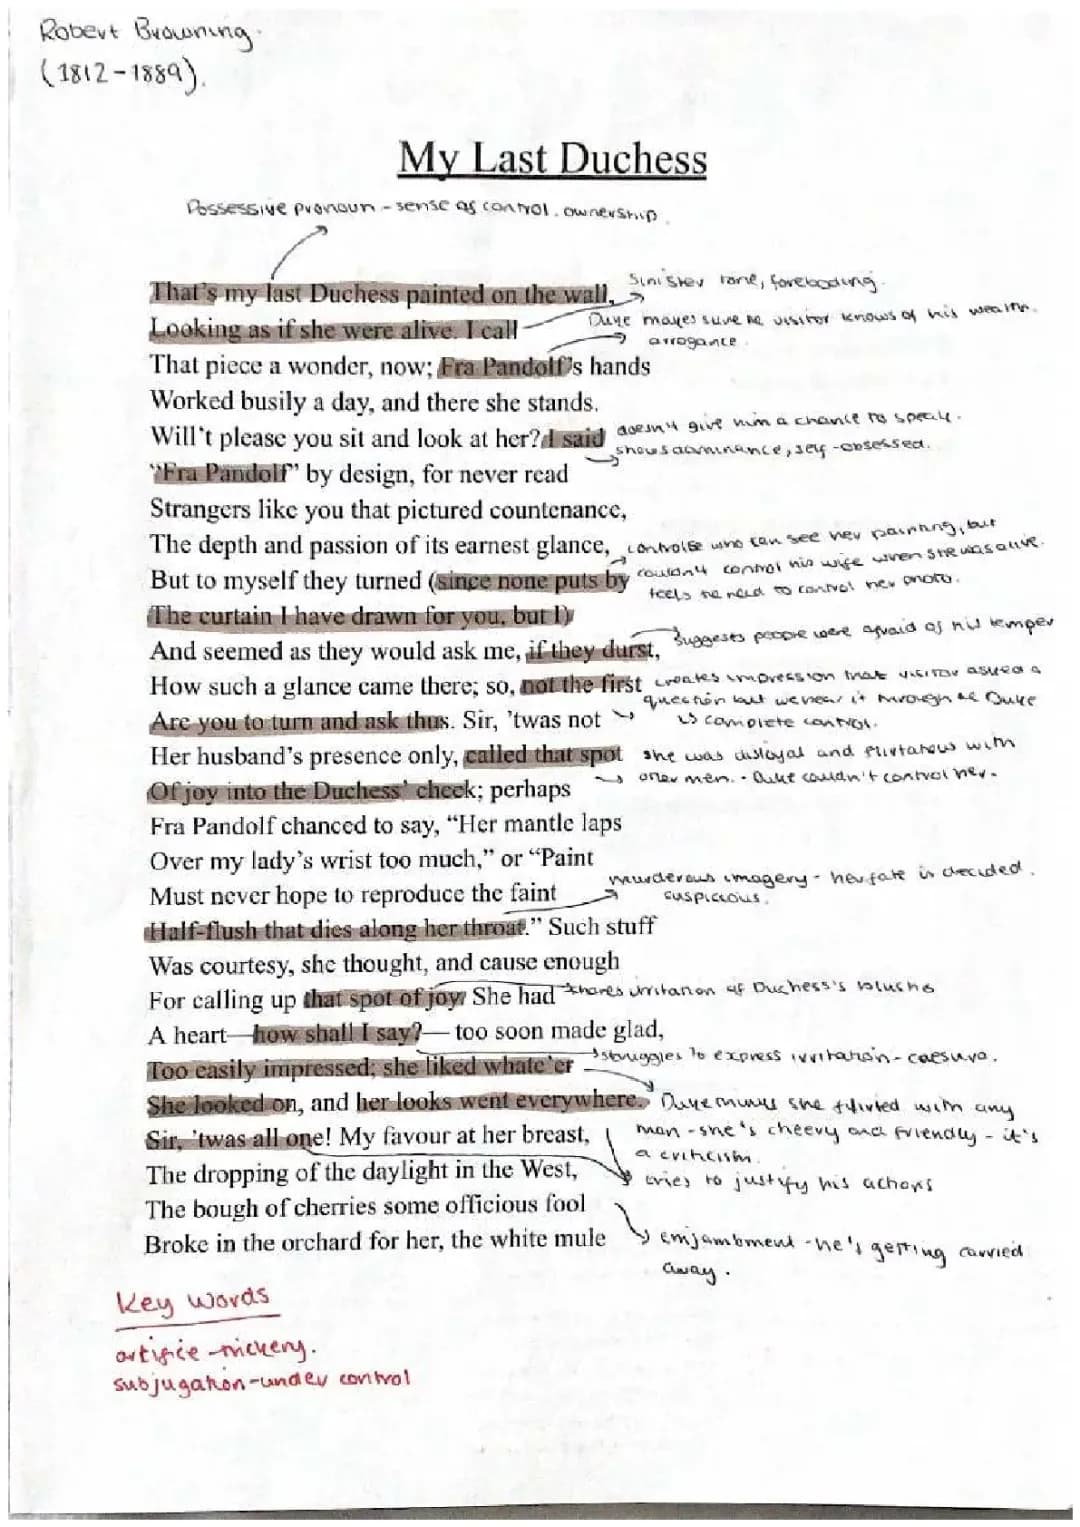 Robert Browning.
(1812-1889).
My Last Duchess
Possessive pronoun - sense of control. ownership.
That's my last Duchess painted on the wall,
Sinister tone, foreboding.
Looking as if she were alive. I call
Duke makes sure he visitor knows of his wealth.
arrogance.
That piece a wonder, now; Fra Pandolf's hands
Worked busily a day, and there she stands.
Will't please you sit and look at her? I said
doesn't give him a chance to speak.
shows dominance, self-obsessed.
"Fra Pandolf" by design, for never read
Strangers like you that pictured countenance,
The depth and passion of its earnest glance,
controls who can see her painting, but
couldn't control his wife when she was alive.
feels the need to control her photo.
But to myself they turned (since none puts by
The curtain I have drawn for you, but I)
And seemed as they would ask me, if they durst,
suggests people were afraid of his temper
How such a glance came there; so, not the first
creates impression that visitor asked a
question but we hear it through the Duke
is complete control.
Are you to turn and ask thus. Sir, 'twas not
Her husband's presence only, called that spot
she was disloyal and flirtatous with
other men. - Duke couldn't control her.
Of joy into the Duchess' cheek; perhaps
Fra Pandolf chanced to say, "Her mantle laps
Over my lady's wrist too much," or "Paint
Must never hope to reproduce the faint
murderous imagery - her fate is decided.
suspicious.
Half-flush that dies along her throat." Such stuff
Was courtesy, she thought, and cause enough
For calling up that spot of joy. She had
shares irritation of Duchess's blushs
A heart—how shall I say?— too soon made glad,
struggles to express irritation - caesura.
Too easily impressed; she liked whate'er
She looked on, and her looks went everywhere.
Duke thinks she flirted with any
man - she's cheery and friendly - it's
a criticism.
Sir, 'twas all one! My favour at her breast,
tries to justify his actions
The dropping of the daylight in the West,
The bough of cherries some officious fool
Broke in the orchard for her, the white mule
enjambment - he's getting carried
away.
Key words
artifice - trickery.
subjugation - under control